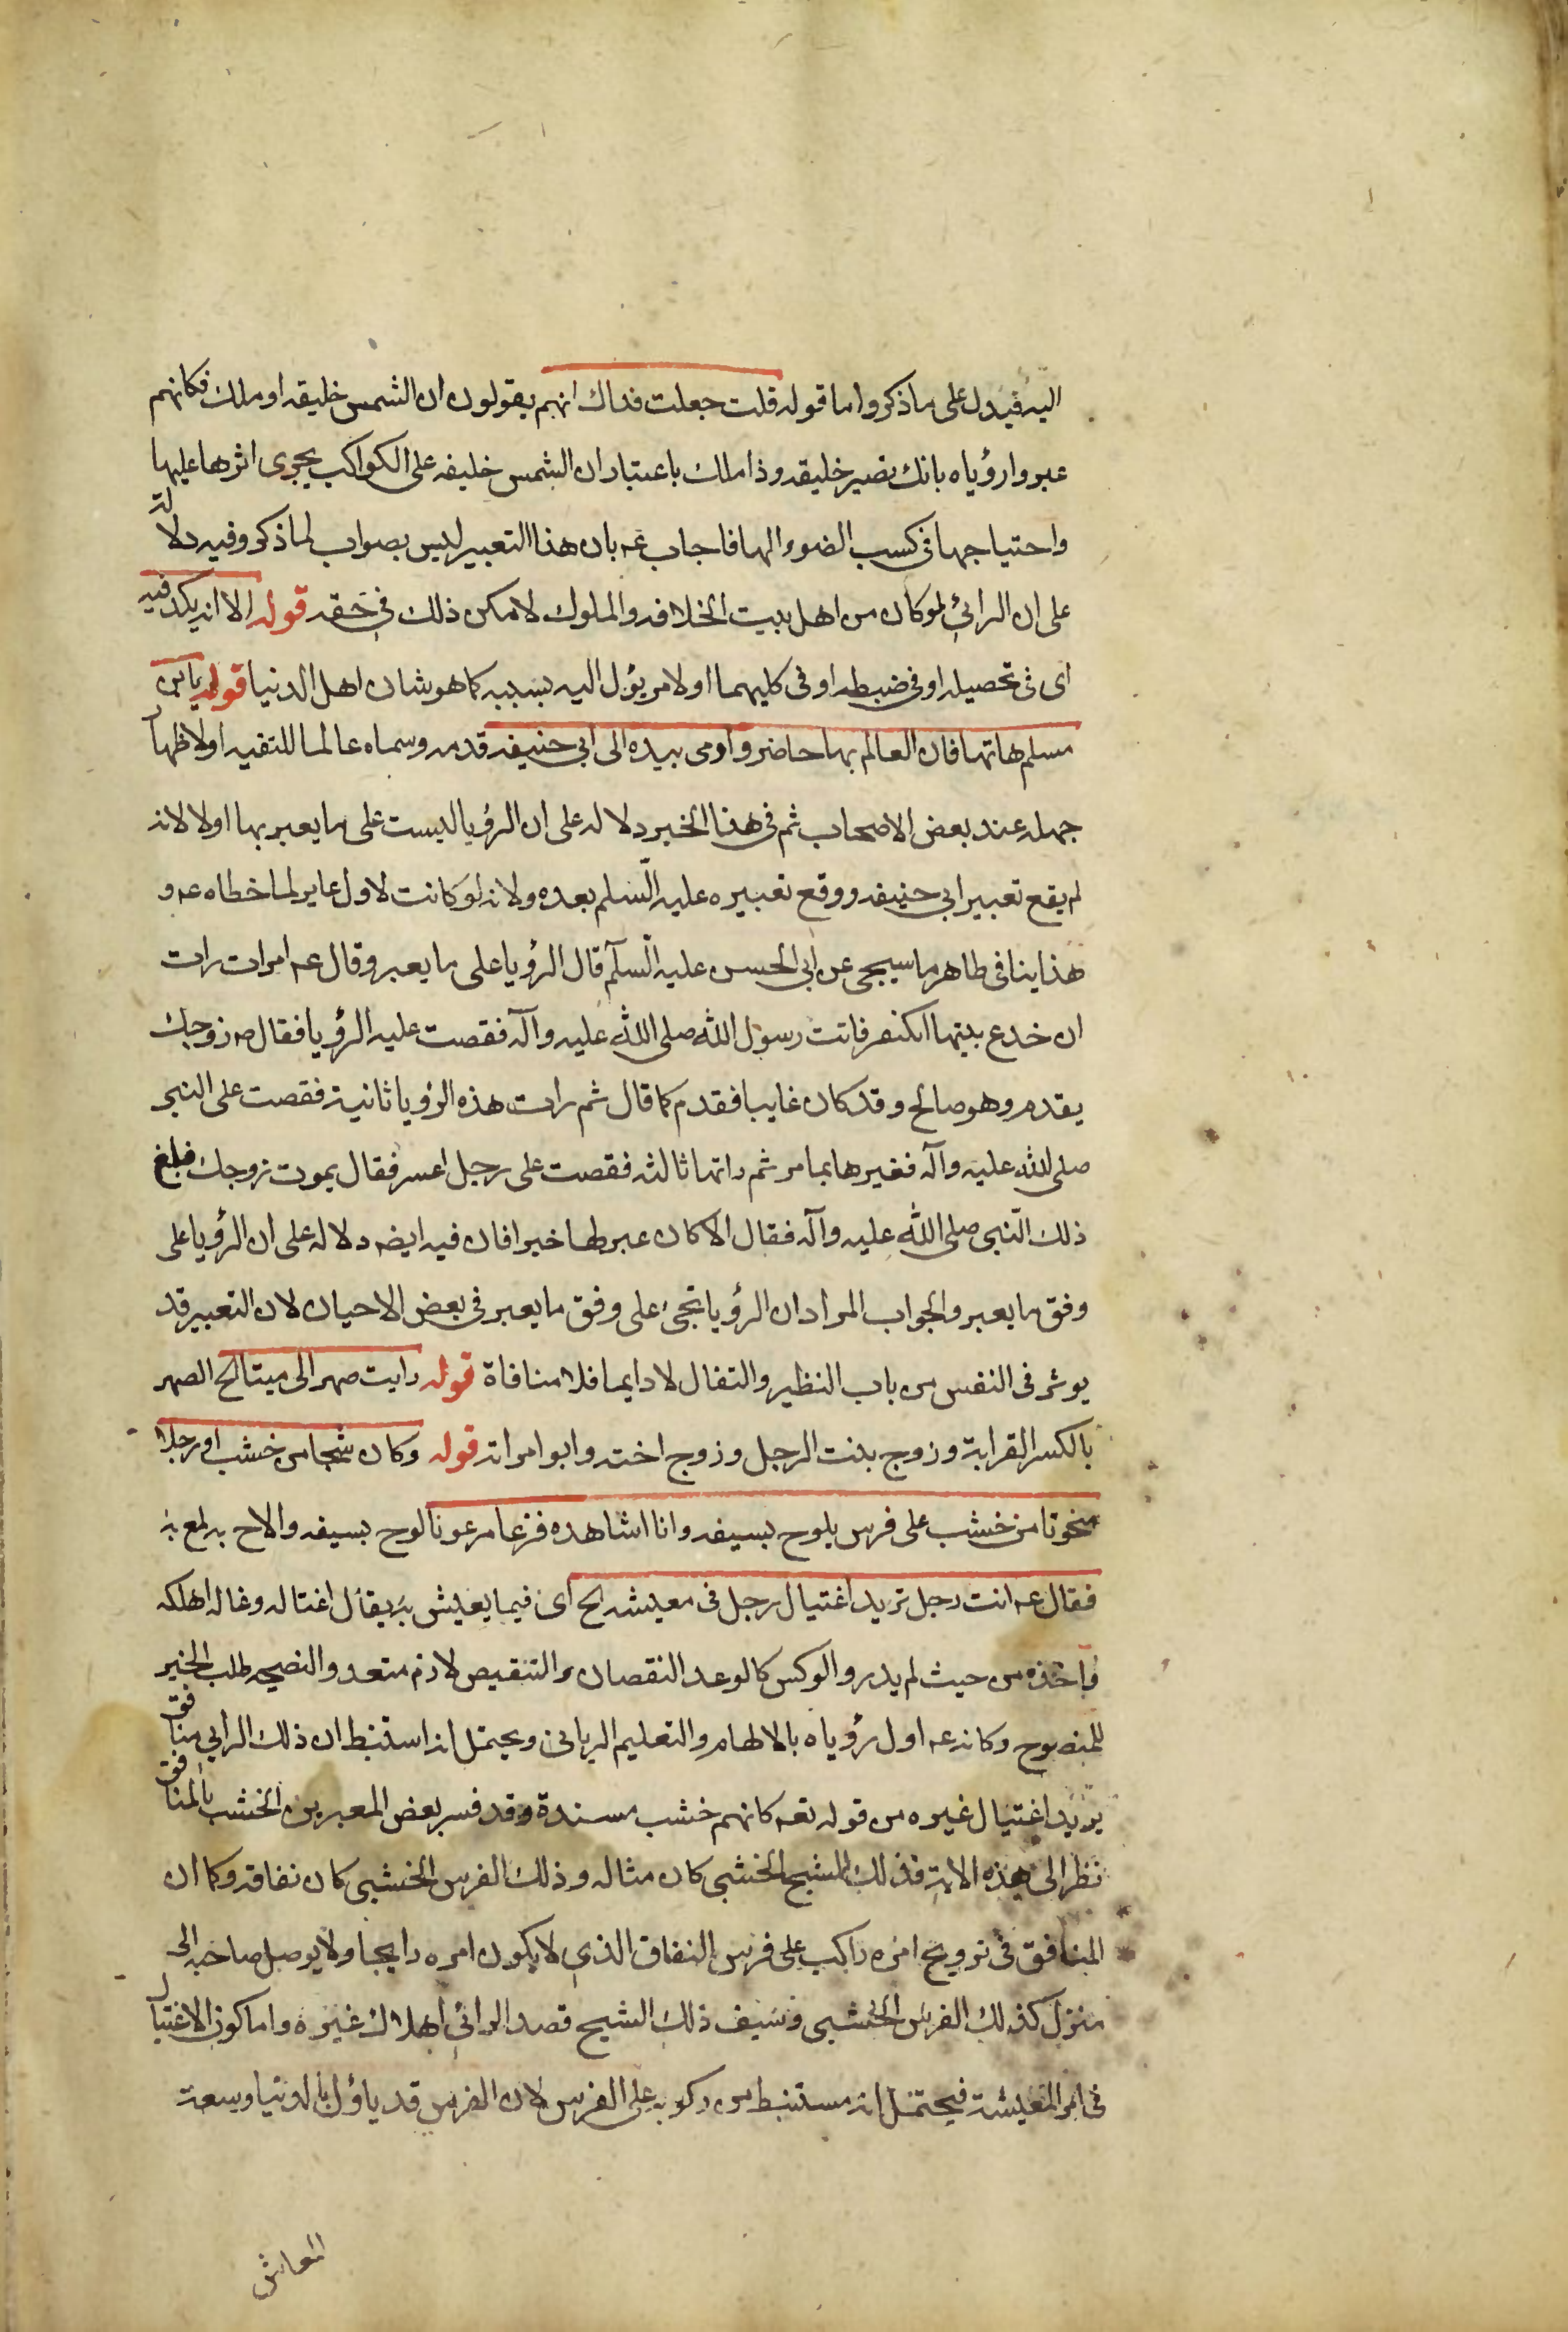 اليه فيدل على ما ذكروا اما قوله قلت جعلت فداك انهم يقولون ان الشمس خليفه او ملك فكانهم
عبروا رؤياه بانك تصير خليفه وذا ملك باعتبار ان الشمس خليفه على الكواكب يجرى اثرها عليها
واحتياجها فى كسب الضوء الها فاجاب عه بان هذا التعبير ليس بصواب لما ذكر وفيه دلالة
على ان الرائي لو كان من اهل بيت الخلافه والملوك لا مكن ذلك في حقه قوله الا انه يكد فيه
اى فى تحصيله او فى ضبطه او فى كليهما او لامر يؤل اليه بسببه كما هو شان اهل الدنيا قوله يابن
مسلم هاتها فان العالم بها حاضر واومى بيده الى ابى حنيفه قدمه وسماه عالما للتقيه او لاظهار
جهله عند بعض الاصحاب ثم فى هذا الخبر دلاله على ان الرؤيا ليست على ما يعبر بها اولا لانه
لم يقع تعبير ابى حنيفه ووقع تعبيره عليه السلم بعده ولانه لو كانت لاول عابر لما خطاه عه و
هذا ينافى طاهر ما سيجى عن ابى الحسن عليه السلم قال الرؤيا على ما يعبر وقال عه امرات رات
ان خدع بيتها انكسر فاتت رسول الله صلى الله عليه وآله فقصت عليه الرؤيا فقال ص زوجك
يقدم وهو صالح وقد كان غايبا فقدم كما قال ثم رات هذه الرؤيا ثانية فقصت على النبى
صلى الله عليه وآله فغبرها بما مر ثم راتها ثالثه فقصت على رجل اعسر فقال يموت زوجك فبلغ
ذلك النبى صلى الله عليه وآله فقال الا كان عبر لها خيرا فان فيه ايضه دلاله على ان الرؤيا على
وفق ما يعبر والجواب المراد ان الرؤيا تجئ على وفق ما يعبر فى بعض الاحيان لان التعبير قد
يوثر فى النفس من باب النظير والتفال لا دايما فلا منافاة قوله رايت صهرا لى ميتا الخ الصهر
بالكسر القرابة وزوج بنت الرجل وزوج اخته وابو امراته قوله وكان شبحا من خشب او رجلا
منحوتا من خشب على فرس يلوح بسيفه وانا اشاهده فزعا مرعوبا لوح بسيفه والاح به لمع به
فقال عه انت رجل تريد اغتيال رجل فى معيشه الخ اى فيما يعيش به يقال اغتاله وغاله اهلكه
واخذه من حيث لم يدر والوكس كالوعد النقصان والتنقيص لازم متعد والنصيحه طلب الخير
للمنصوح وكانه عه اول رؤياه بالالهام والتعليم الربانى ويحتمل انه استنبط ان ذلك الرايى منافق
يريد اغتيال غيره من قوله تعه كانهم خشب مسندة وقد فسر بعض المعبرين الخشب بالمنافق
نظر الى هذه الاية فذلك الشبح الخشبى كان مثاله وذلك الفرس الخشبى كان نفاقه وكما ان
المنافق فى ترويج امره راكب على فرس النفاق الذى لا يكون امره رايجا ولا يوصل صاحبه الى
منزل كذلك الفرس الخشبى وسيف ذلك الشبح قصد الرائي اهلاك غيره واما كون الاغتيال
فى امر المعيشة فيحتمل انه مستنبط من ركوبه على الفرس لان الفرس قد ياؤل بالدنيا وسعة
المعاش